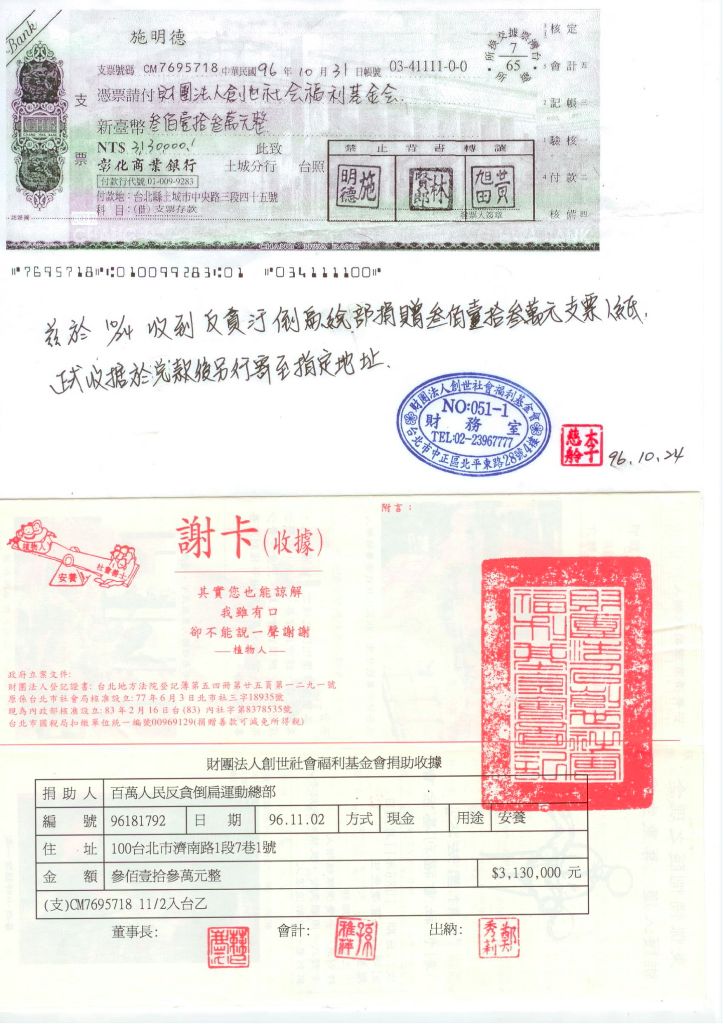 Bank
施明德
支票號碼 CM7695718 中華民國 96 年 10 月 31 日 帳號 03-41111-0-0
憑票請付 財團法人創世社会福利基金会
新臺幣 叁佰壹拾叁萬元整
NT$ 3130000.! 此致
彰化商業銀行 土城分行 台照
付款行代號 01-009-9283
付款地:台北縣土城市中央路三段四十五號
科目:(借)支票存款
支票
禁止背書轉讓
施明德
林
黃旭田
發票人簽章
7
65
核定
會計
記帳
驗核
付款
核備
CHANG HWA BANK
⑈7695718⑈⑆010099283⑆01 ⑈034111100⑈
茲於 10/24 收到反貪污倒扁總部捐贈叁佰壹拾叁萬元支票1紙.
正式收据於兌款後另行寄至指定地址.
財團法人創世社會福利基金會
NO:051-1
財務室
TEL:02-23967777
台北市中正區北平東路28號4樓
96.10.24
植物人
社會善士
安養
謝卡(收據)
附言:
其實您也能諒解
我雖有口
卻不能說一聲謝謝
—植物人—
政府立案文件:
財團法人登記證書:台北地方法院登記簿第五四冊第廿五頁第一二九一號
原係台北市社會局核准設立:77年6月3日北市社三字18935號
現為內政部核准設立:83年2月16日台(83)內社字第8378535號
台北市國稅局扣繳單位統一編號00969129(捐贈善款可減免所得稅)
財團法人創世社會福利基金會捐助收據
捐助人 百萬人民反貪倒扁運動總部
編號 96181792 日期 96.11.02 方式 現金 用途 安養
住址 100台北市濟南路1段7巷1號
金額 參佰壹拾參萬元整 $3,130,000 元
(支)CM7695718 11/2入台乙
董事長: 會計: 孫雅萍 出納: 鄭秀莉